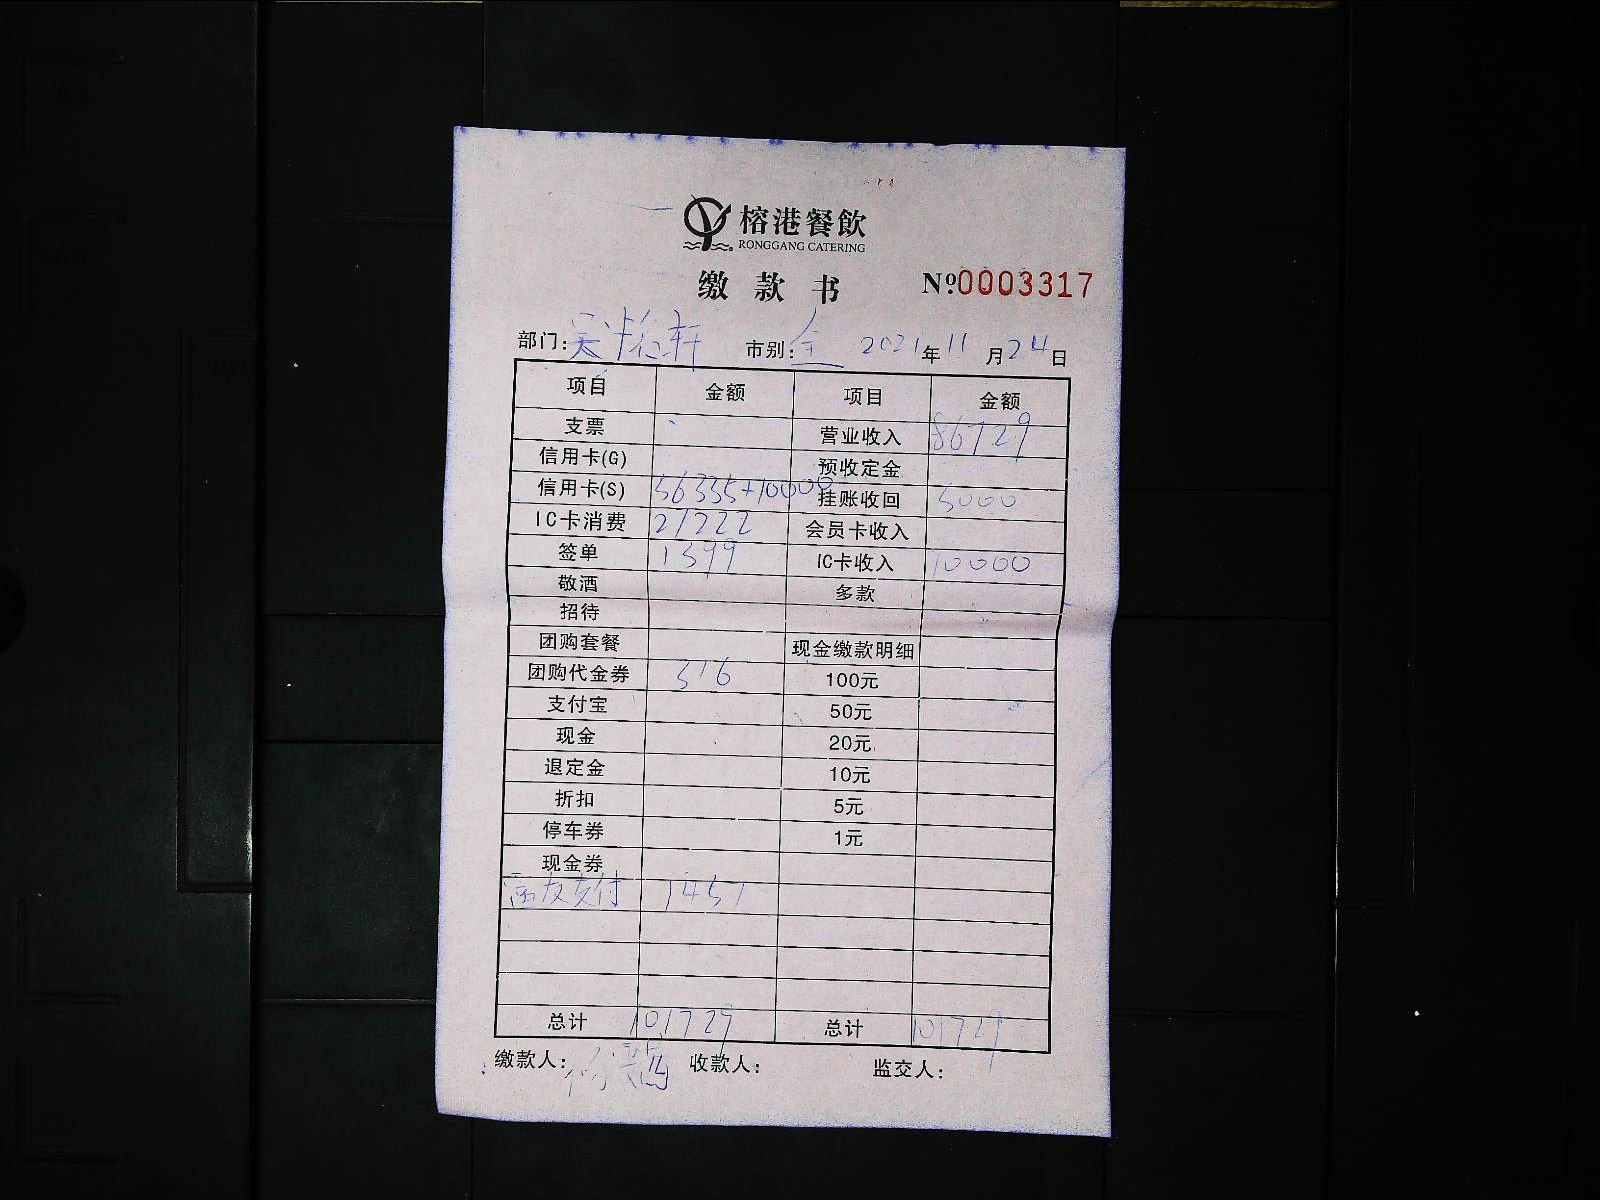 榕港餐飲
RONGGANG CATERING
缴款书 Nº0003317
部门: 市别: 全 2021年11月24日
项目 金额 项目 金额
支票 营业收入 86729
信用卡(G) 预收定金
信用卡(S) 56335+10000 挂账收回 5000
IC卡消费 21222 会员卡收入
签单 1399 IC卡收入 10000
敬酒 多款
招待
团购套餐 现金缴款明细
团购代金券 316 100元
支付宝 50元
现金 20元
退定金 10元
折扣 5元
停车券 1元
现金券
支付 1451
总计 101729 总计 101729
缴款人: 收款人: 监交人: